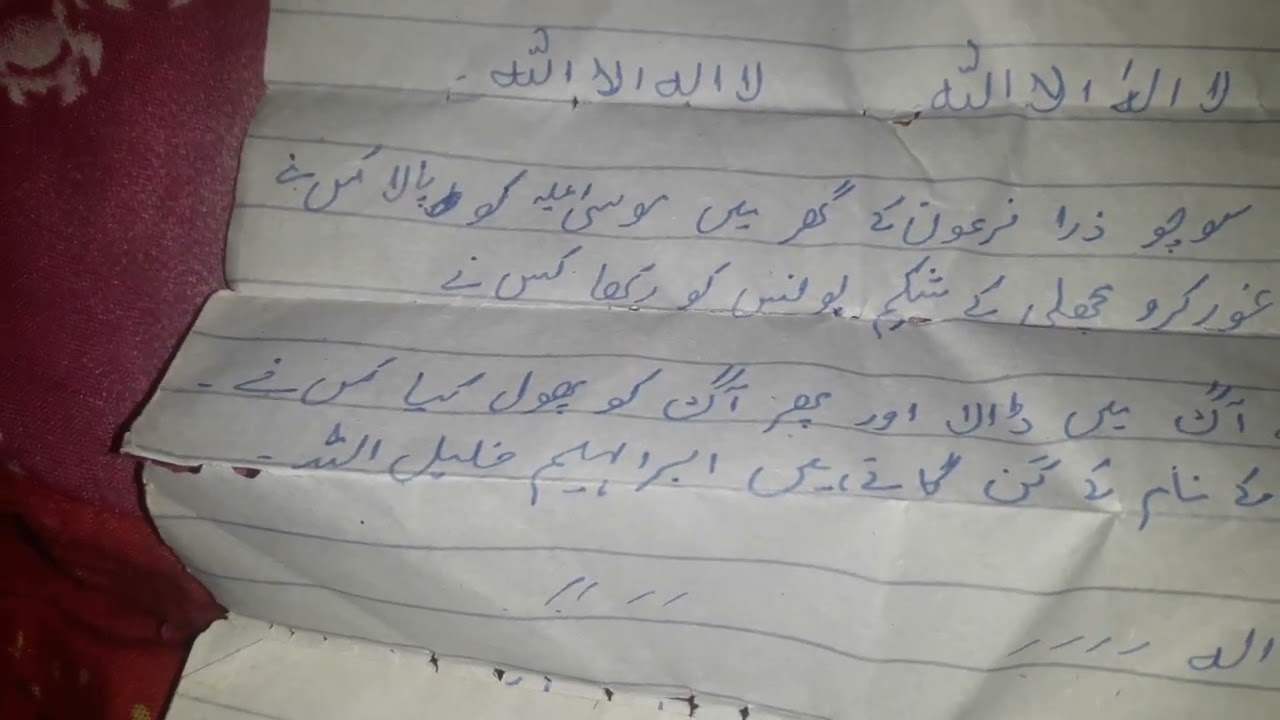 لا الہٰ الا اللّٰہ لا الہ الا اللّٰہ
سوچو ذرا فرعون کے گھر میں موسیٰؑ کو پالا کس نے
غور کرو مچھلی کے شکم یونس کو رکھا کس نے
آگ میں ڈالا اور پھر آگ کو پھول کیا کس نے ۔
کے نام کے گن گاتے ہیں ابراہیم خلیل اللہ ۔
الہ